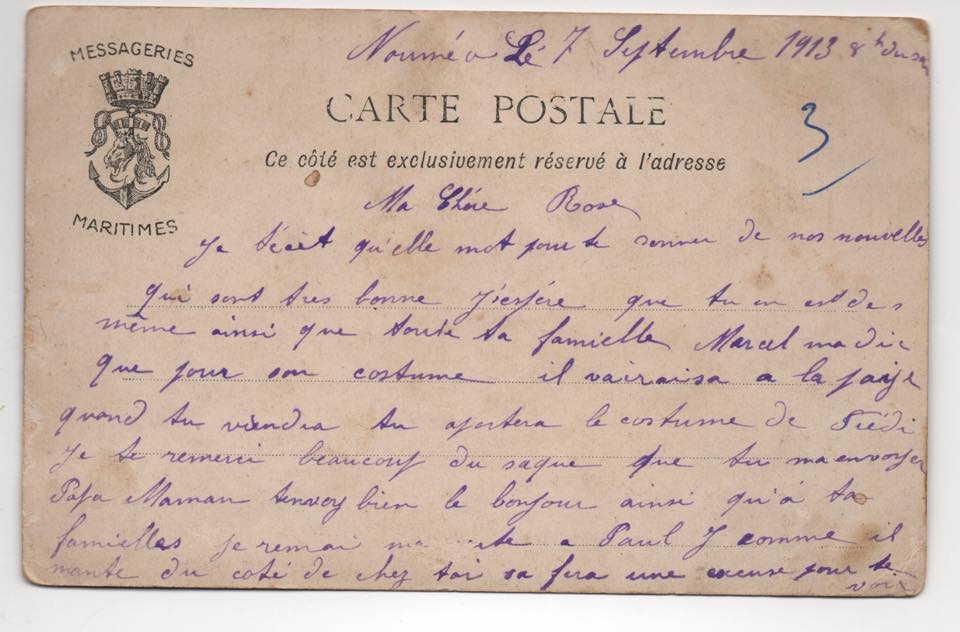 MESSAGERIES
MARITIMES
Nouméa Lé 7 Septembre 1913 8h du soir
CARTE POSTALE
3
Ce côté est exclusivement réservé à l'adresse
Ma Chére Rose
Je técrit qu'elle mot pour te donner de nos nouvelles
qui sont tres bonne J'espére que tu en est de
même ainsi que toute ta famielle Marcel ma dit
que pour son costume il vairaisa a la paye
quand tu viendra tu aportera le costume de
Je te remerci beaucoup du saque que tu ma envoyer
Papa Maman tenvoy bien le bonjour ainsi qu'á ta
famielles je remai a Paul J comme il
monte du coté de chez toi sa fera une excuse pour te
voir